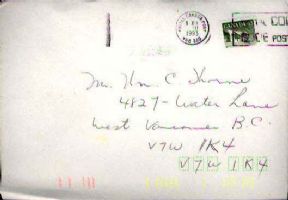 1993
CANADA
Mr. Wm C Thorne
4827 - Water Lane
West Vancouver B.C.
V7W 1K4
V7W 1K4